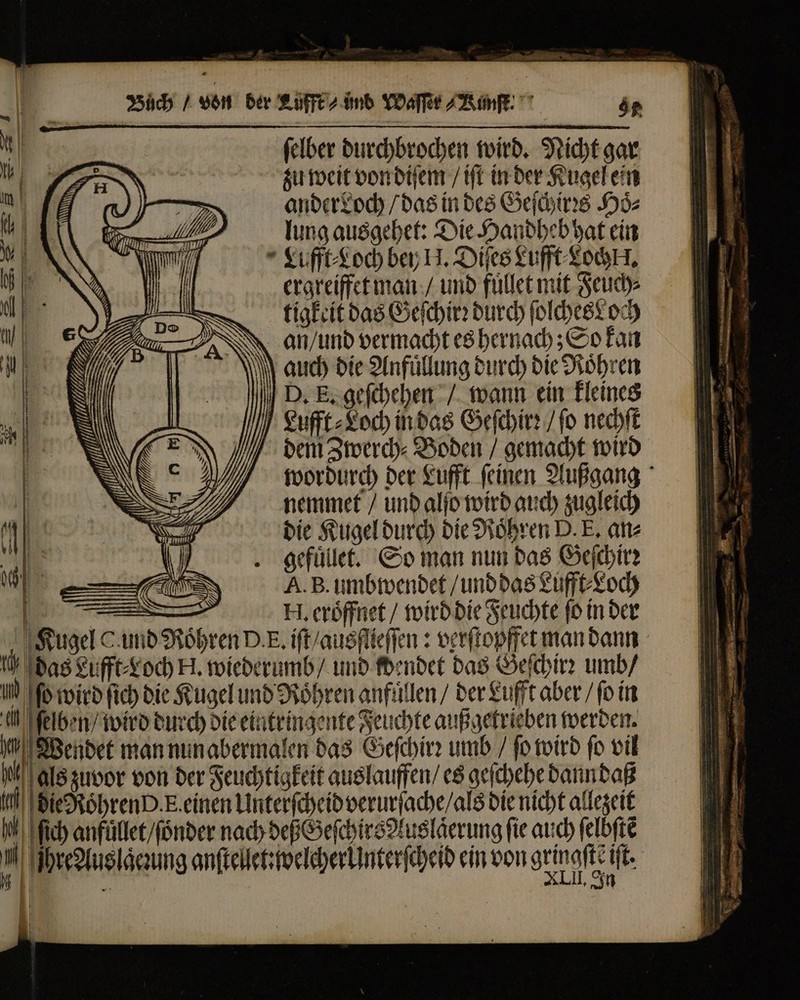 Buch / von der Lufft⸗ und Wasser⸗Kunst.
selber durchbrochen wird. Nicht gar
zu weit von disem / ist in der Kugel ein
ander Loch / das in des Geschirꝛs Hoͤ⸗
lung ausgehet: Die Handheb hat ein
Lufft⸗Loch bey H. Dises Lufft⸗Loch H.
ergreiffet man / und fuͤllet mit Feuch⸗
tigkeit das Geschirꝛ durch solches Loch
an / und vermacht es hernach; So kan
auch die Anfuͤllung durch die Roͤhren
D. E. geschehen / wann ein kleines
Lufft⸗Loch in das Geschirꝛ / so nechst
dem Zwerch⸗Boden / gemacht wird
wordurch der Lufft seinen Außgang
nemmet / und also wird auch zugleich
die Kugel durch die Roͤhren D. E. an⸗
gefuͤllet. So man nun das Geschirꝛ
A. B. umbwendet / und das Lufft⸗Loch
H. eroͤffnet / wird die Feuchte so in der
Kugel C. und Roͤhren D. E. ist / ausfliessen: verstopffet man dann
das Lufft⸗Loch H. wiederumb / und wendet das Geschirꝛ umb /
so wird sich die Kugel und Roͤhren anfuͤllen / der Lufft aber / so in
selben / wird durch die eintringente Feuchte außgetrieben werden.
Wendet man nun abermalen das Geschirꝛ umb / so wird so vil
als zuvor von der Feuchtigkeit auslauffen / es geschehe dann daß
die Roͤhren D. E. einen Unterscheid verursache / als die nicht allezeit
sich anfuͤllet / sonder nach deß Geschirs Auslaͤerung sie auch selbstẽ
jhre Auslaͤeꝛung anstellet: welcher Unterscheid ein von gringstẽ ist.
XLII. In
H
G
D
B
A
E
C
F